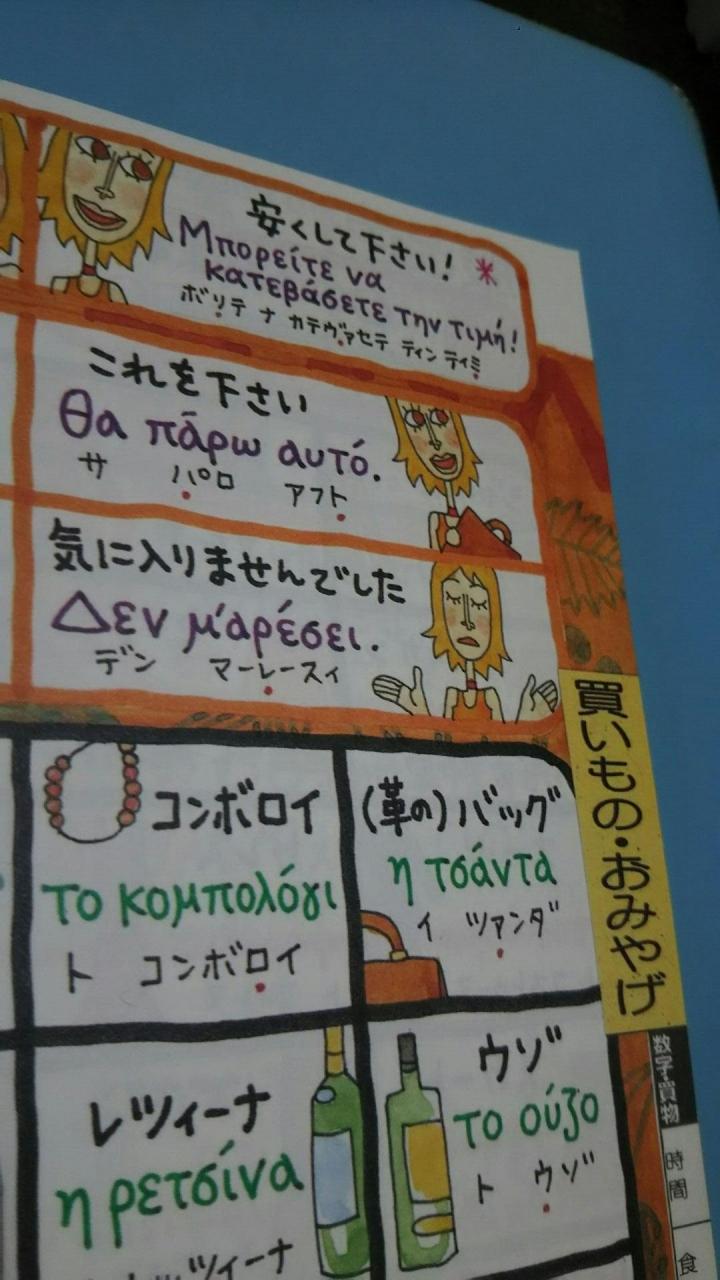 安くして下さい!
Μπορείτε να
κατεβάσετε την τιμή! *
ボリテ ナ カテヴァセテ ティン ティミ
これを下さい
Θα πάρω αυτό.
サ パロ アフト
気に入りませんでした
Δεν μ'αρέσει.
デン マーレースィ
コンボロイ
το κομπολόγι
ト コンボロイ
(革の)バッグ
η τσάντα
イ ツァンダ
レツィーナ
η ρετσίνα
ツィーナ
ウゾ
το ούζο
ト ウゾ
買いもの・おみやげ
数字・買物
時間
食